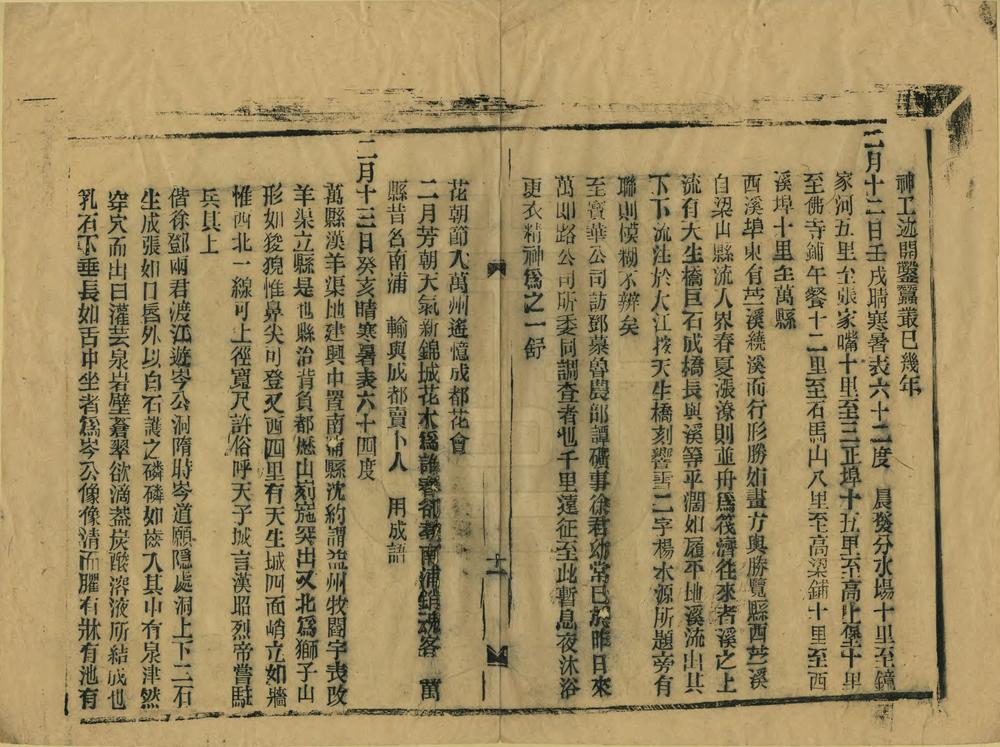 神工迹開鑿蠶叢已幾年
二月十二日壬戌晴寒暑表六十二度　晨發分水場十里至鐘
家河五里至張家嘴十里至三正埠十五里至高止堡十里
至佛寺鋪午餐十二里至石馬山八里至高梁鋪十里至西
溪埠十里至萬縣
西溪埠東有苧溪繞溪而行形勝如畫方輿勝覽縣西苧溪
自梁山縣流入界春夏漲潦則並舟爲筏濟往來者溪之上
流有大生橋巨石成橋長與溪等平濶如履平地溪流出其
下下流注於大江按天生橋刻響雪二字楊水源所題旁有
聯則糢糊不辨矣
至寶華公司訪鄧慕魯農部譚礦事徐君幼常已於昨日來
萬即路公司所委同調查者也千里遠征至此暫息夜沐浴
更衣精神爲之一舒
十一
花朝節入萬州遙憶成都花會
二月芳朝天氣新錦城花木爲誰春卻敎南浦銷魂客　萬
縣昔名南浦　輸與成都賣卜人　用成語
二月十三日癸亥晴寒暑表六十四度
萬縣漢羊渠地建興中置南浦縣沈約謂益州牧閻宇表改
羊渠立縣是也縣治背負都歷山刻施突出又北爲獅子山
形如狻猊惟鼻尖可登又西四里有天生城四面峭立如牆
惟西北一線可上徑寬尺許俗呼天子城言漢昭烈帝嘗駐
兵其上
偕徐鄧兩君渡江遊岑公洞隋時岑道願隱處洞上下二石
生成張如口唇外以白石護之磷磷如齒入其中有泉津然
穿穴而出曰灌芸泉岩壁蒼翠欲滴蓋炭酸溶液所結成也
乳石下垂長如舌中坐者爲岑公像像淸而臞有牀有池有